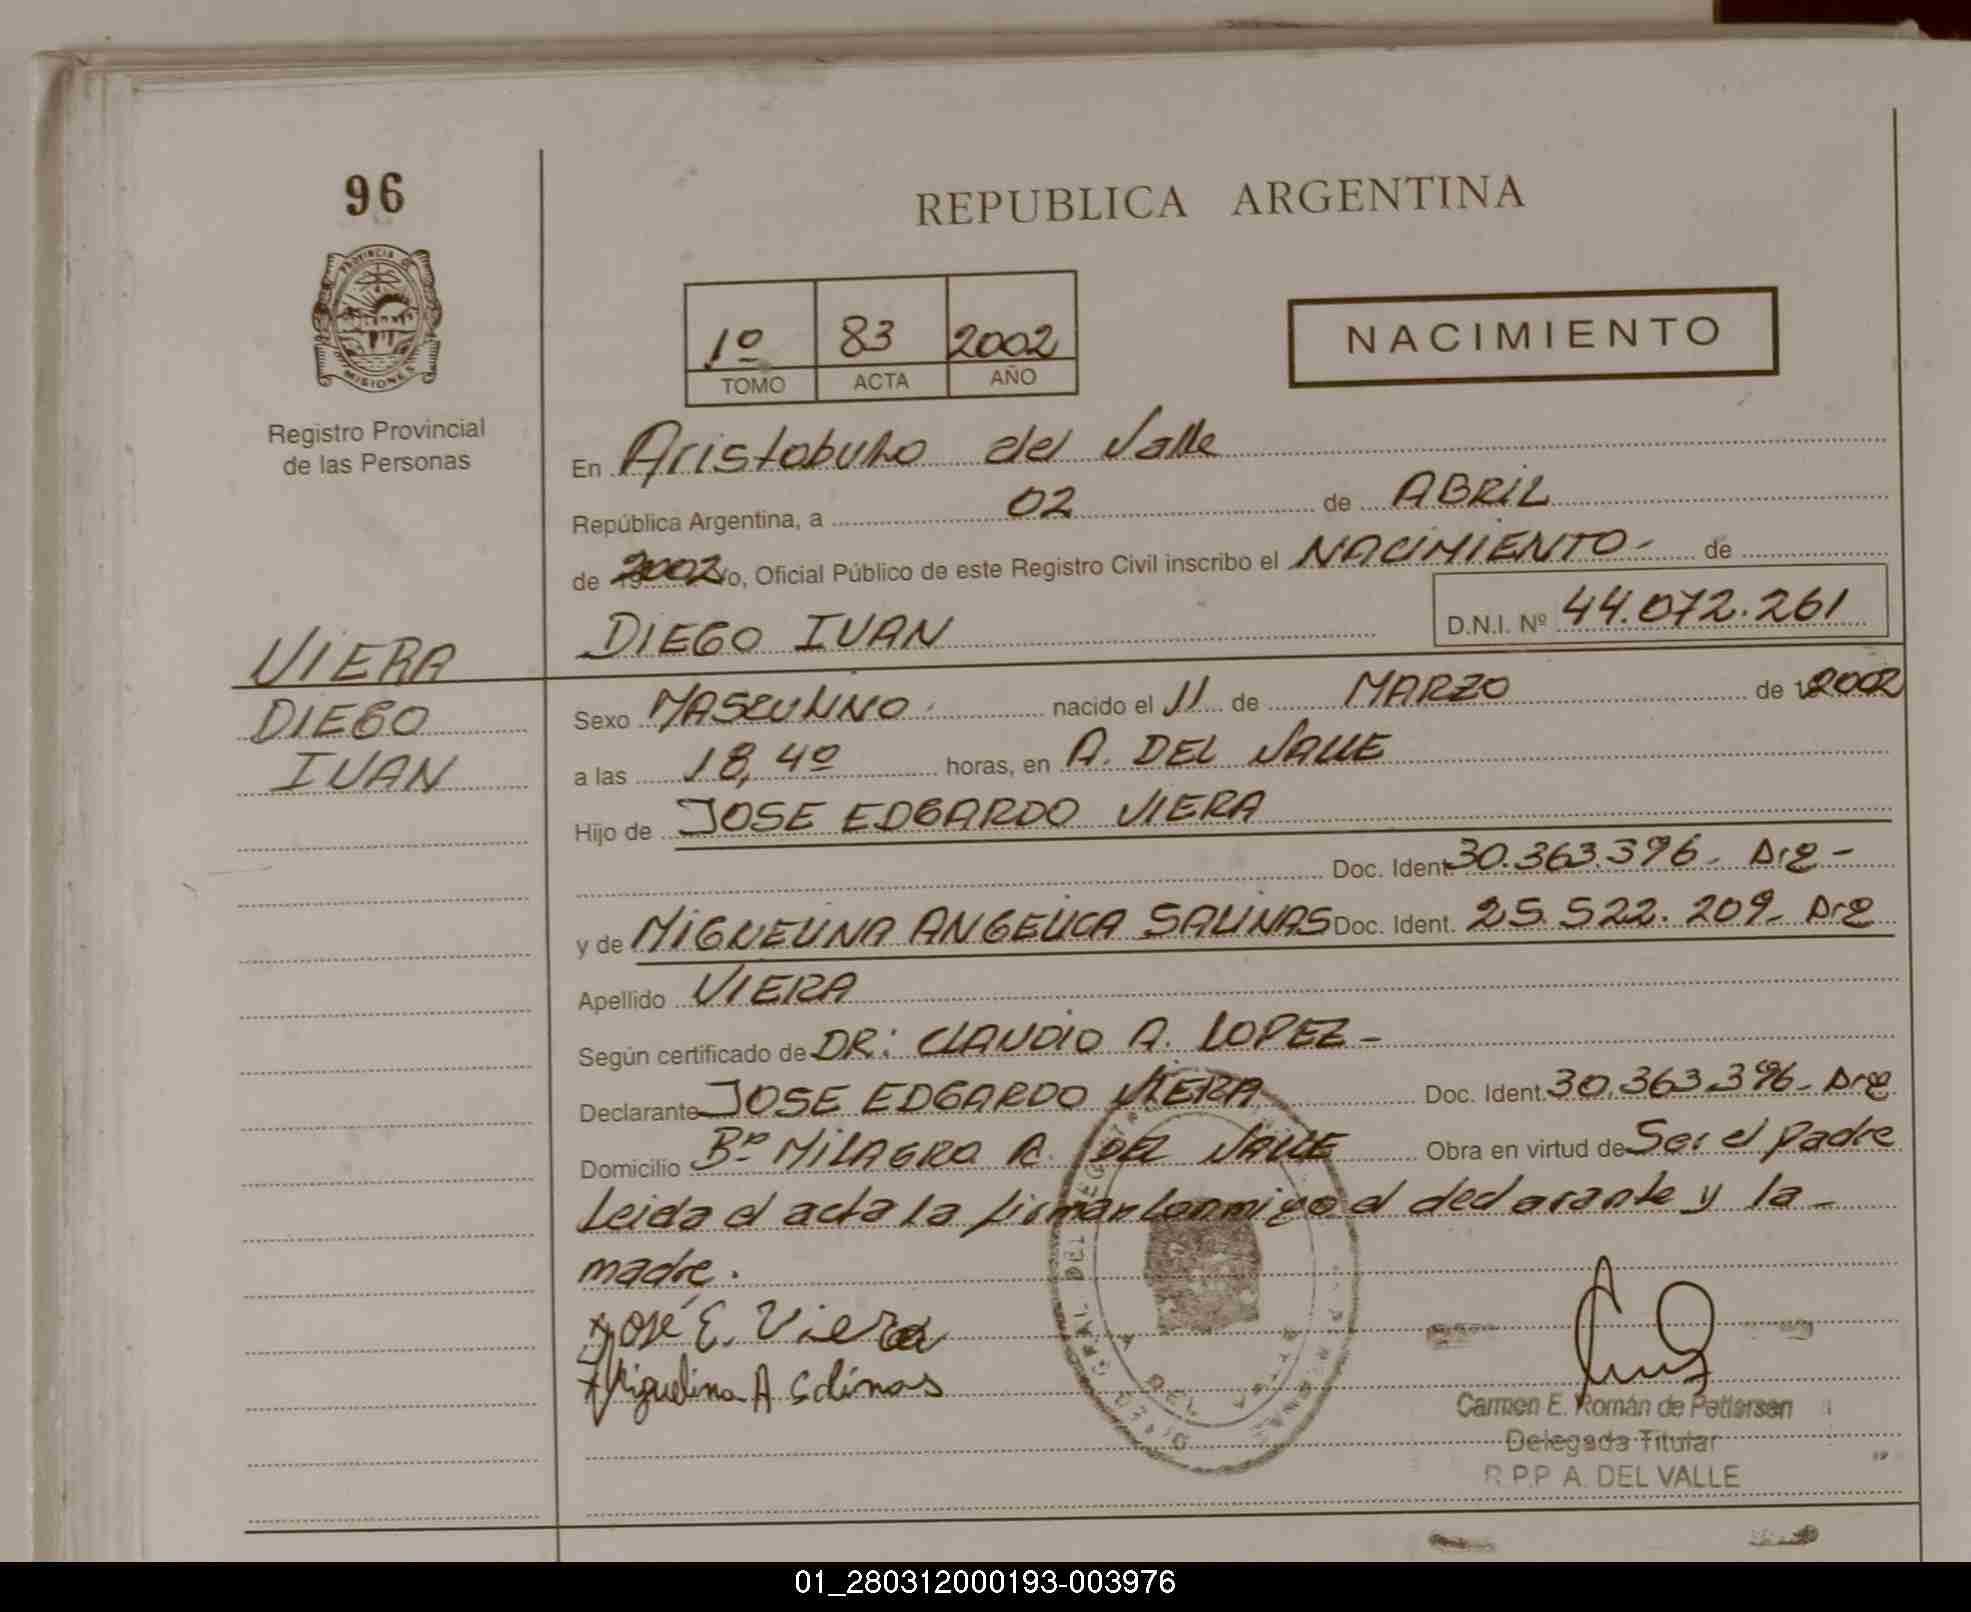 96
REPUBLICA ARGENTINA
PROVINCIA DE
MISIONES
1º 83 2002
TOMO ACTA AÑO
NACIMIENTO
Registro Provincial
de las Personas
En Aristobulo del Valle
República Argentina, a 02 de ABRIL
de 2002 Yo, Oficial Público de este Registro Civil inscribo el NACIMIENTO - de
DIEGO IVAN D.N.I. Nº 44.072.261
VIERA
DIEGO
IVAN
Sexo MASCULINO. nacido el 11 de MARZO de 2002
a las 18,40 horas, en A. DEL VALLE
Hijo de JOSE EDGARDO VIERA
Doc. Ident. 30.363.396- Arg-
y de MIGUELINA ANGELICA SALINAS Doc. Ident. 25.522.209- Arg
Apellido VIERA
Según certificado de DR: CLAUDIO A. LOPEZ -
Declarante JOSE EDGARDO VIERA Doc. Ident. 30.363.396- Arg
Domicilio Bº MILAGRO A. DEL VALLE Obra en virtud de Ser el padre
Leida el acta la firman conmigo el declarante y la -
madre.
José E. Viera
Miguelina A Salinas
Carmen E. Román de Pettersen
Delegada Titular
R.P.P A. DEL VALLE
01_280312000193-003976